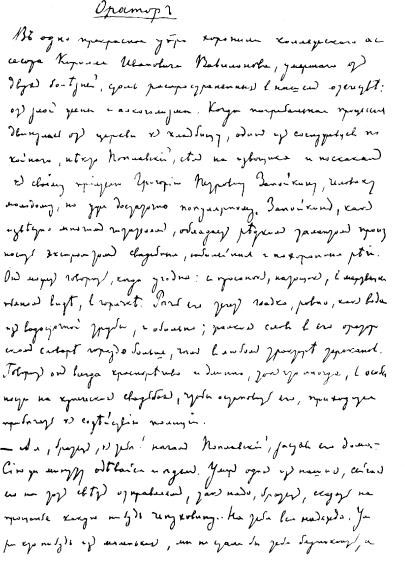 Ораторъ
Въ одно прекрасное утро хоронили коллежскаго ас-
сесора Кирилла Ивановича Вавилонова, умершаго отъ
двухъ болѣзней, столь распространенныхъ въ нашемъ отечествѣ:
отъ злой жены и алкоголизма. Когда погребальная процессія
двинулась отъ церкви къ кладбищу, одинъ изъ сослуживцевъ по-
койнаго, нѣкто Поплавскій, сѣлъ на извощика и поскакалъ
къ своему пріятелю Григорію Петровичу Запойкину, человѣку
молодому, но уже достаточно популярному. Запойкинъ, какъ
извѣстно многимъ читателямъ, обладаетъ рѣдкимъ талантомъ произ-
носить экспромтомъ свадебныя, юбилейныя и похоронныя рѣчи.
Онъ можетъ говорить, когда угодно: съ просонокъ, натощакъ, въ мертвецки
пьяномъ видѣ, въ горячкѣ. Рѣчь его течетъ гладко, ровно, какъ вода
изъ водосточной трубы, и обильно; жалкихъ словъ въ его оратор-
скомъ словарѣ гораздо больше, чѣмъ въ любомъ трактирѣ таракановъ.
Говоритъ онъ всегда краснорѣчиво и длинно, такъ что иногда, въ особен-
ности на купеческихъ свадьбахъ, чтобы остановить его, приходится
прибѣгать къ содѣйствію полиціи.
— А я, братецъ, къ тебѣ! началъ Поплавскій, заставъ его дома. —
Сію же минуту одѣвайся и ѣдемъ. Умеръ одинъ изъ нашихъ, сейчасъ
его на тотъ свѣтъ отправляемъ, такъ надо, братецъ, сказать на
прощанье какую нибудь чепуховину.. На тебя вся надежда. Ум-
ри кто нибудь изъ маленькихъ, мы не стали бы тебя безпокоить, а